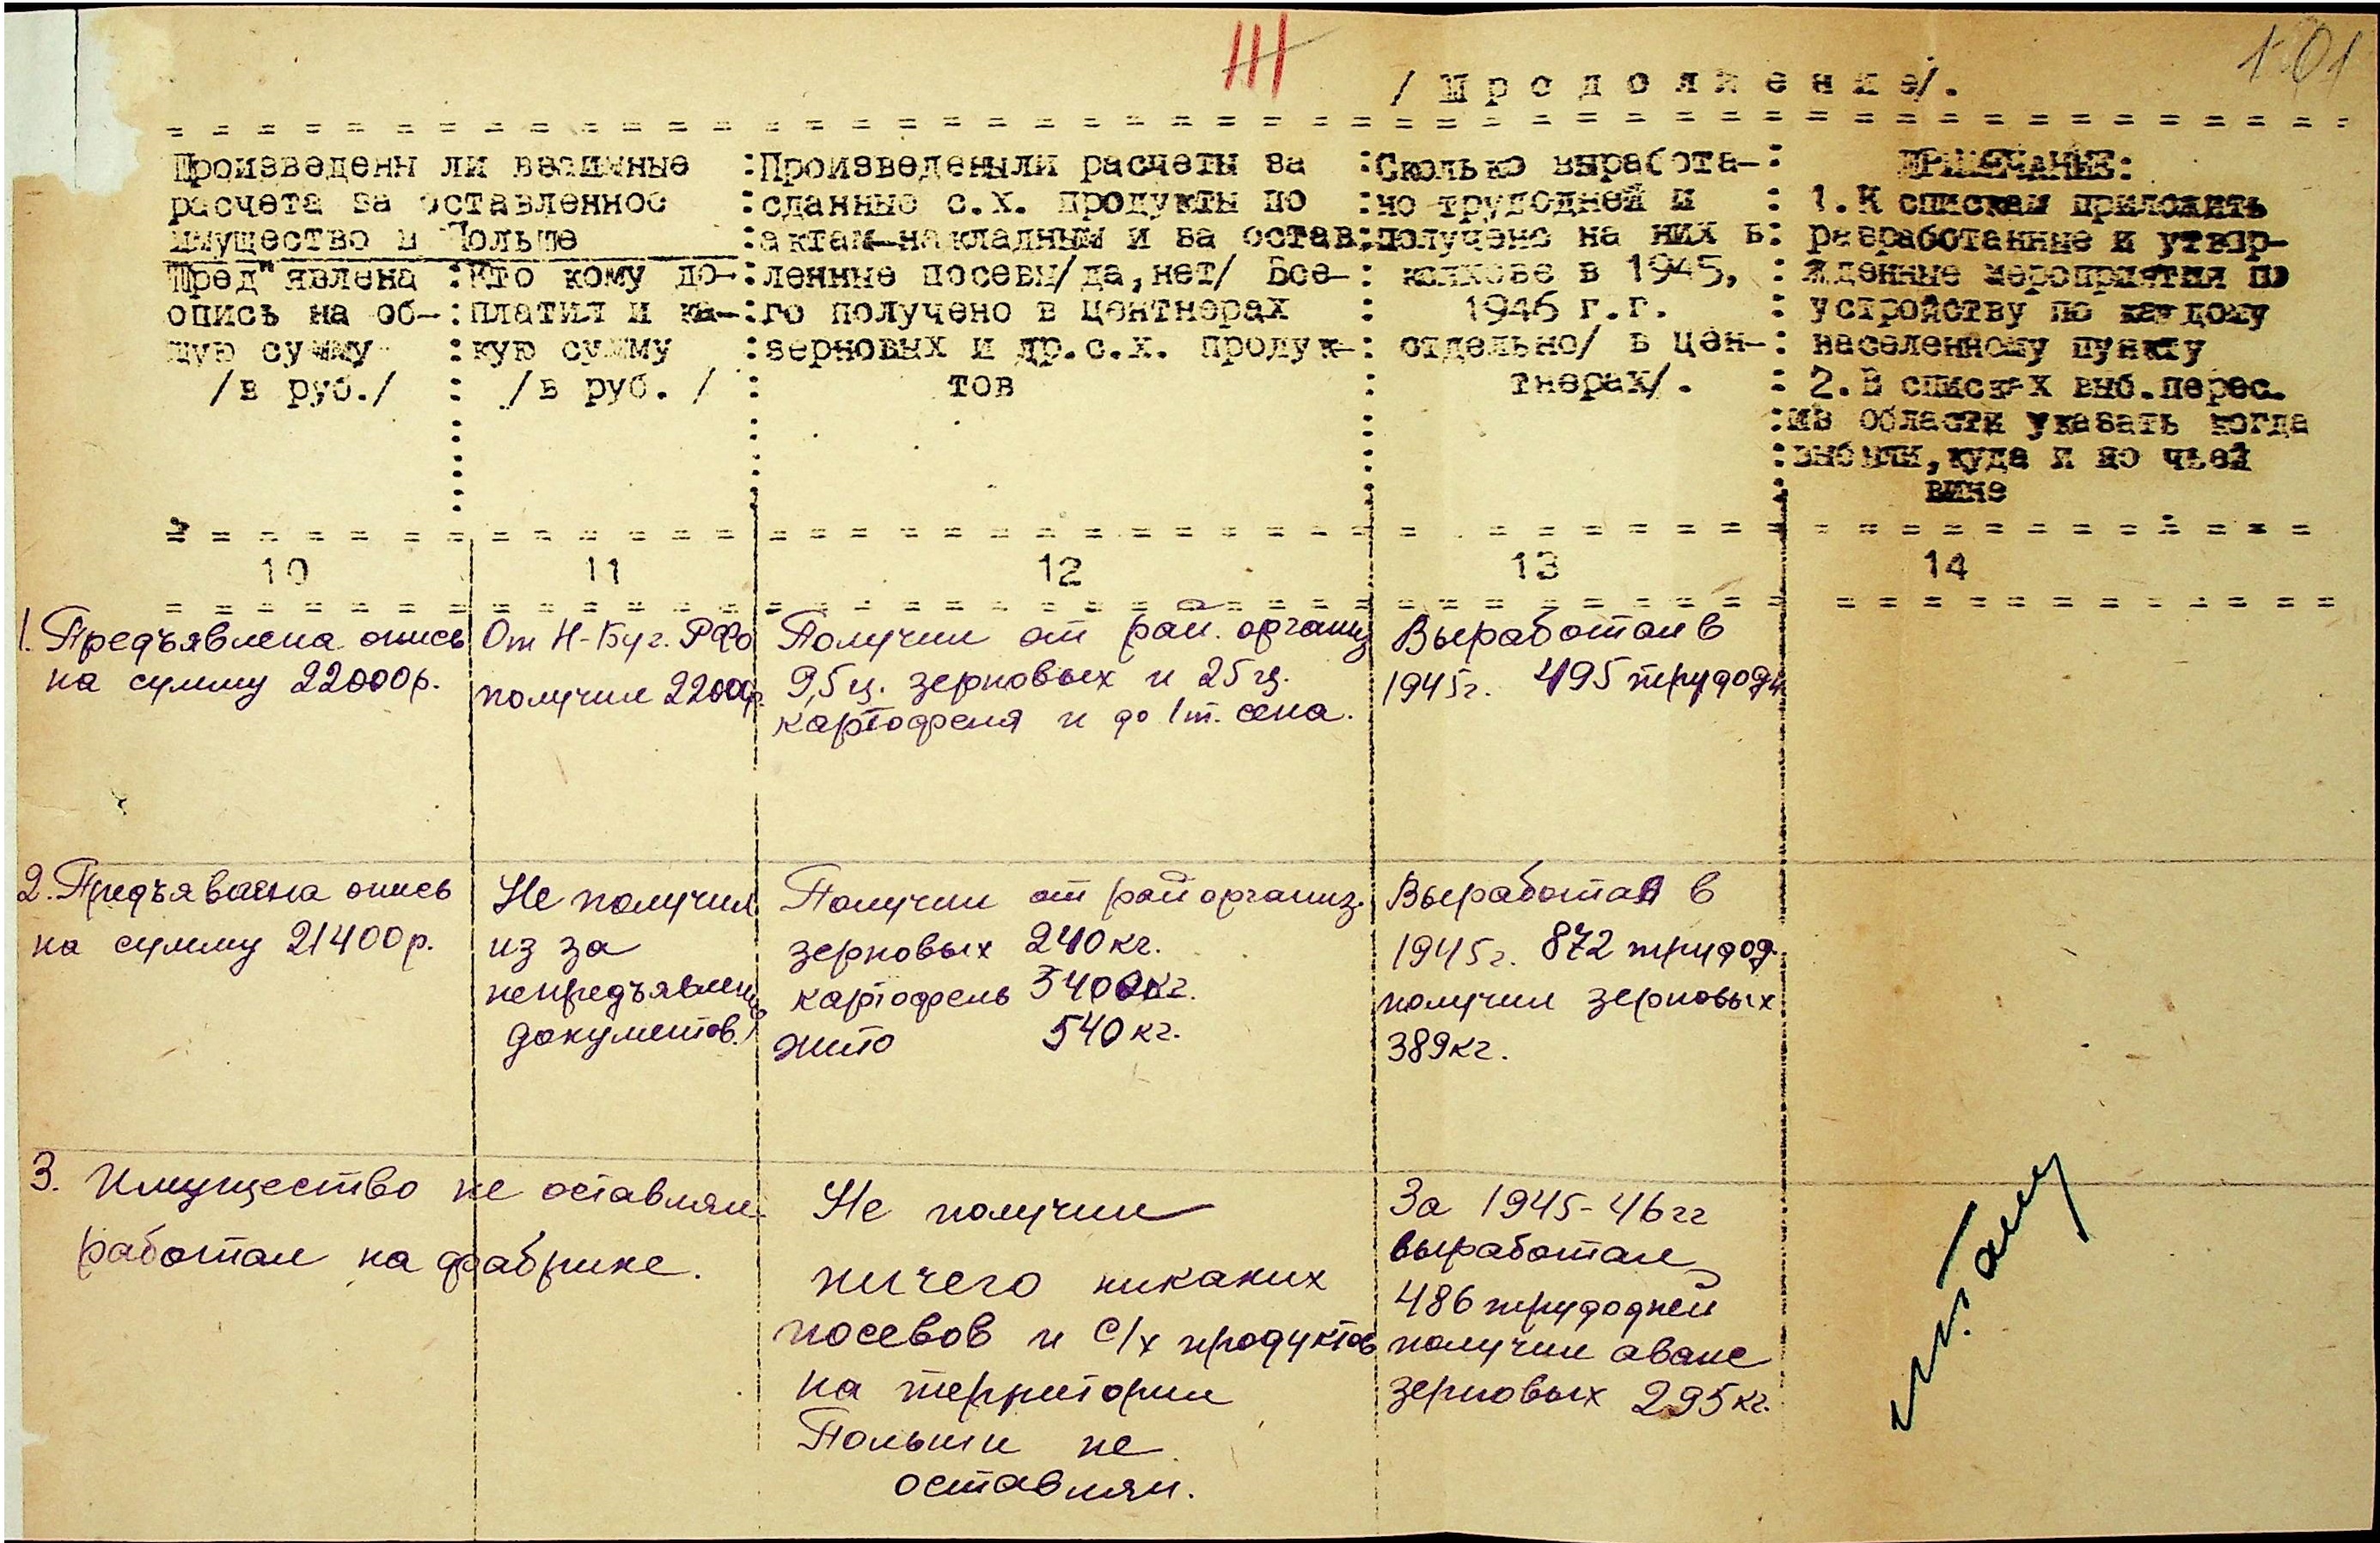 III
101
/ П р о д о л ж е н и е/.
Произведены ли взаимные
расчета за оставленное
имущество в Польше
Пред"явлена
опись на об-
щую сумму
/в руб./
Кто кому до-
платил и ка-
кую сумму
/в руб. /
Произведены ли расчеты за
сданные с.х. продукты по
актам-накладным и за остав
ленные посевы/да,нет/ Все-
го получено в центнерах
зерновых и др.с.х. продук-
тов
Сколько выработа-
но трудодней и
получено на них в
колхозе в 1945,
1946 г.г.
отдельно/ в цен-
тнерах/.
ПРИМЕЧАНИЕ:
1.К спискам приложить
разработанные и утвер-
жденные мероприятия по
устройству по каждому
населенному пункту
2.В списках выб.перес.
из области указать когда
выбыли,куда и по чьей
вине
10 11 12 13 14
1. Предъявлена опись
на сумму 22000р.
От Н-Буг. РФо
получил 22000р.
Получил от рай. организ
9,5ц. зерновых и 25ц.
картофеля и до 1т. сена.
Выработал в
1945г. 495 трудодн
2. Предъявлена опись
на сумму 21400р.
Не получил
из за
непредъявления
документов.
Получил от райорганиз.
зерновых 240кг.
картофель 3400кг.
жито 540кг.
Выработал в
1945г. 872 трудод.
получил зерновых
389кг.
3. Имущество не оставлял
работал на фабрике.
Не получил
ничего никаких
посевов и с/х продуктов
на территории
Польши не
оставлял.
За 1945-46гг
выработал
486 трудодней
получил аванс
зерновых 295кг.